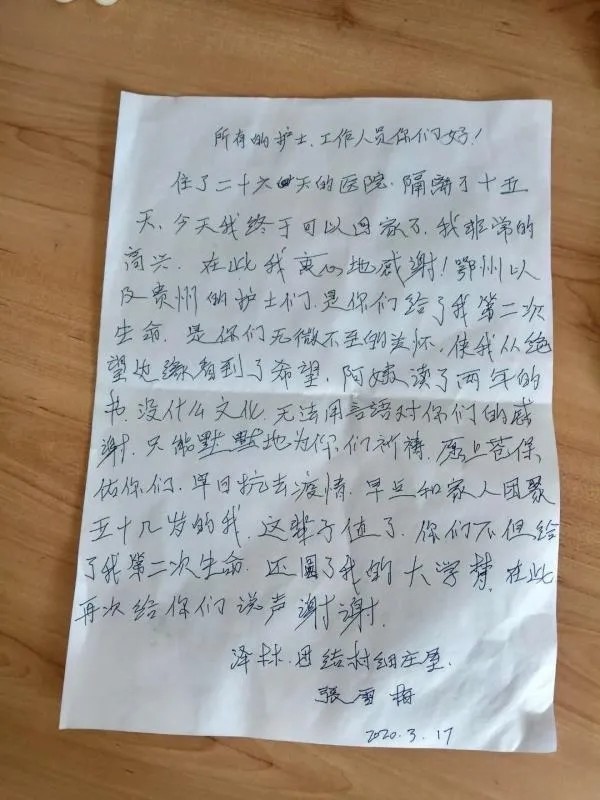 所有的护士、工作人员你们好!
住了二十六天的医院.隔离了十五
天、今天我终于可以回家了.我非常的
高兴.在此我衷心地感谢!鄂州以
及贵州的护士们.是你们给了我第二次
生命.是你们无微不至的关怀.使我从绝
望边缘看到了希望.阿姨读了两年的
书.没什么文化.无法用言语对你们的感
谢.只能默默地为你们祈祷.愿上苍保
佑你们.早日抗去疫情.早旦和家人团聚
五十几岁的我.这辈子值了.你们不但给
了我第二次生命.还圆了我的大学梦.在此
再次给你们说声谢谢.
泽林.团结村细庄屋.
張雪梅
2020.3.17